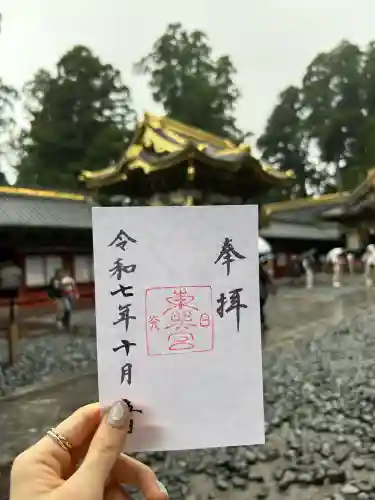 奉拝
東照宮
日光
令和七年十月五日